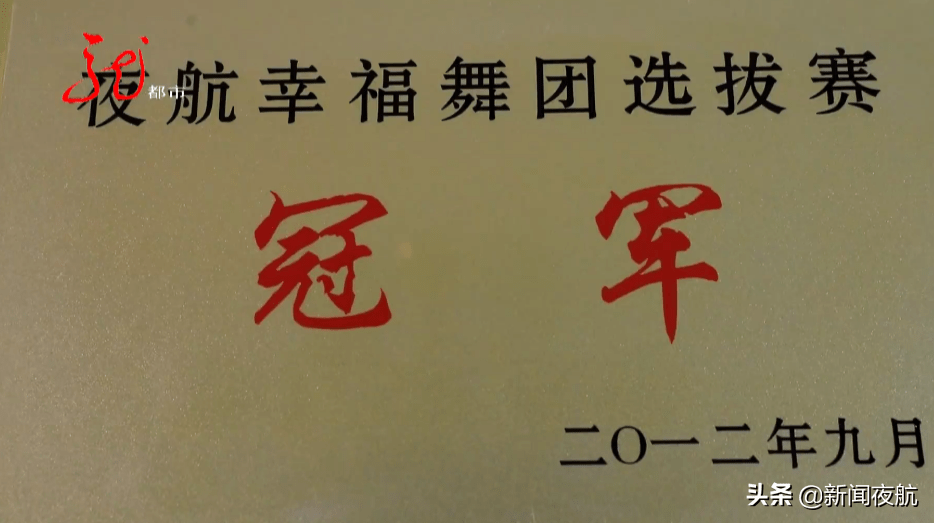 夜航幸福舞团选拔赛
都市
冠军
二〇一二年九月
头条 @新闻夜航